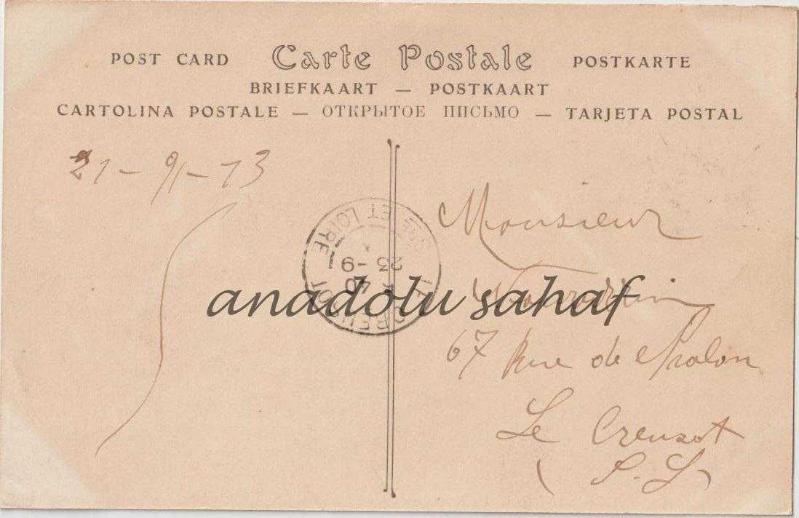 POST CARD Carte Postale POSTKARTE
BRIEFKAART — POSTKAART
CARTOLINA POSTALE — ОТКРЫТОЕ ПИСЬМО — TARJETA POSTAL
21-9-13
Monsieur
67 Rue de
Le Creusot
(S.-L)
LE CREUSOT
ET LOIRE
23-9
anadolu sahaf